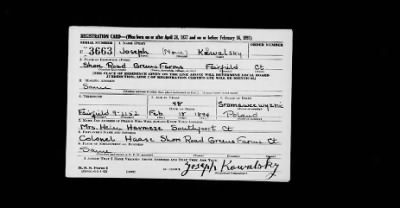 REGISTRATION CARD—(Men born on or after April 28, 1877 and on or before February 16, 1897)
SERIAL NUMBER 1. NAME (Print) ORDER NUMBER
U 3663 Joseph (None) Kowalsky
2. PLACE OF RESIDENCE (Print)
Shore Road Greens Farms Fairfield Ct
[THE PLACE OF RESIDENCE GIVEN ON THE LINE ABOVE WILL DETERMINE LOCAL BOARD
JURISDICTION; LINE 2 OF REGISTRATION CERTIFICATE WILL BE IDENTICAL]
3. MAILING ADDRESS
Same
4. TELEPHONE 5. AGE IN YEARS 6. PLACE OF BIRTH
48
DATE OF BIRTH
Fairfield 9-1152 Feb 18 1894 Poland
7. NAME AND ADDRESS OF PERSON WHO WILL ALWAYS KNOW YOUR ADDRESS
Mrs. Helen Southport Ct
8. EMPLOYER'S NAME AND ADDRESS
Colonel Haase Shore Road Greens Farms Ct
9. PLACE OF EMPLOYMENT OR BUSINESS
Same
I AFFIRM THAT I HAVE VERIFIED ABOVE ANSWERS AND THAT THEY ARE TRUE.
D. S. S. Form 1
Joseph Kowalsky